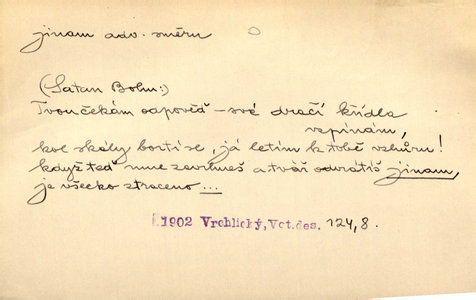 jinam adv. směru
(Satan Bohu:)
Tvou čekám odpověď – své dračí křídla
vzpínám,
kol skály bortí se, já letím k tobě vzhůru!
když teď mne zavrhneš a tvář odvrátíš jinam,
je všecko ztraceno...
1902 Vrchlický, Vot.des. 124, 8.